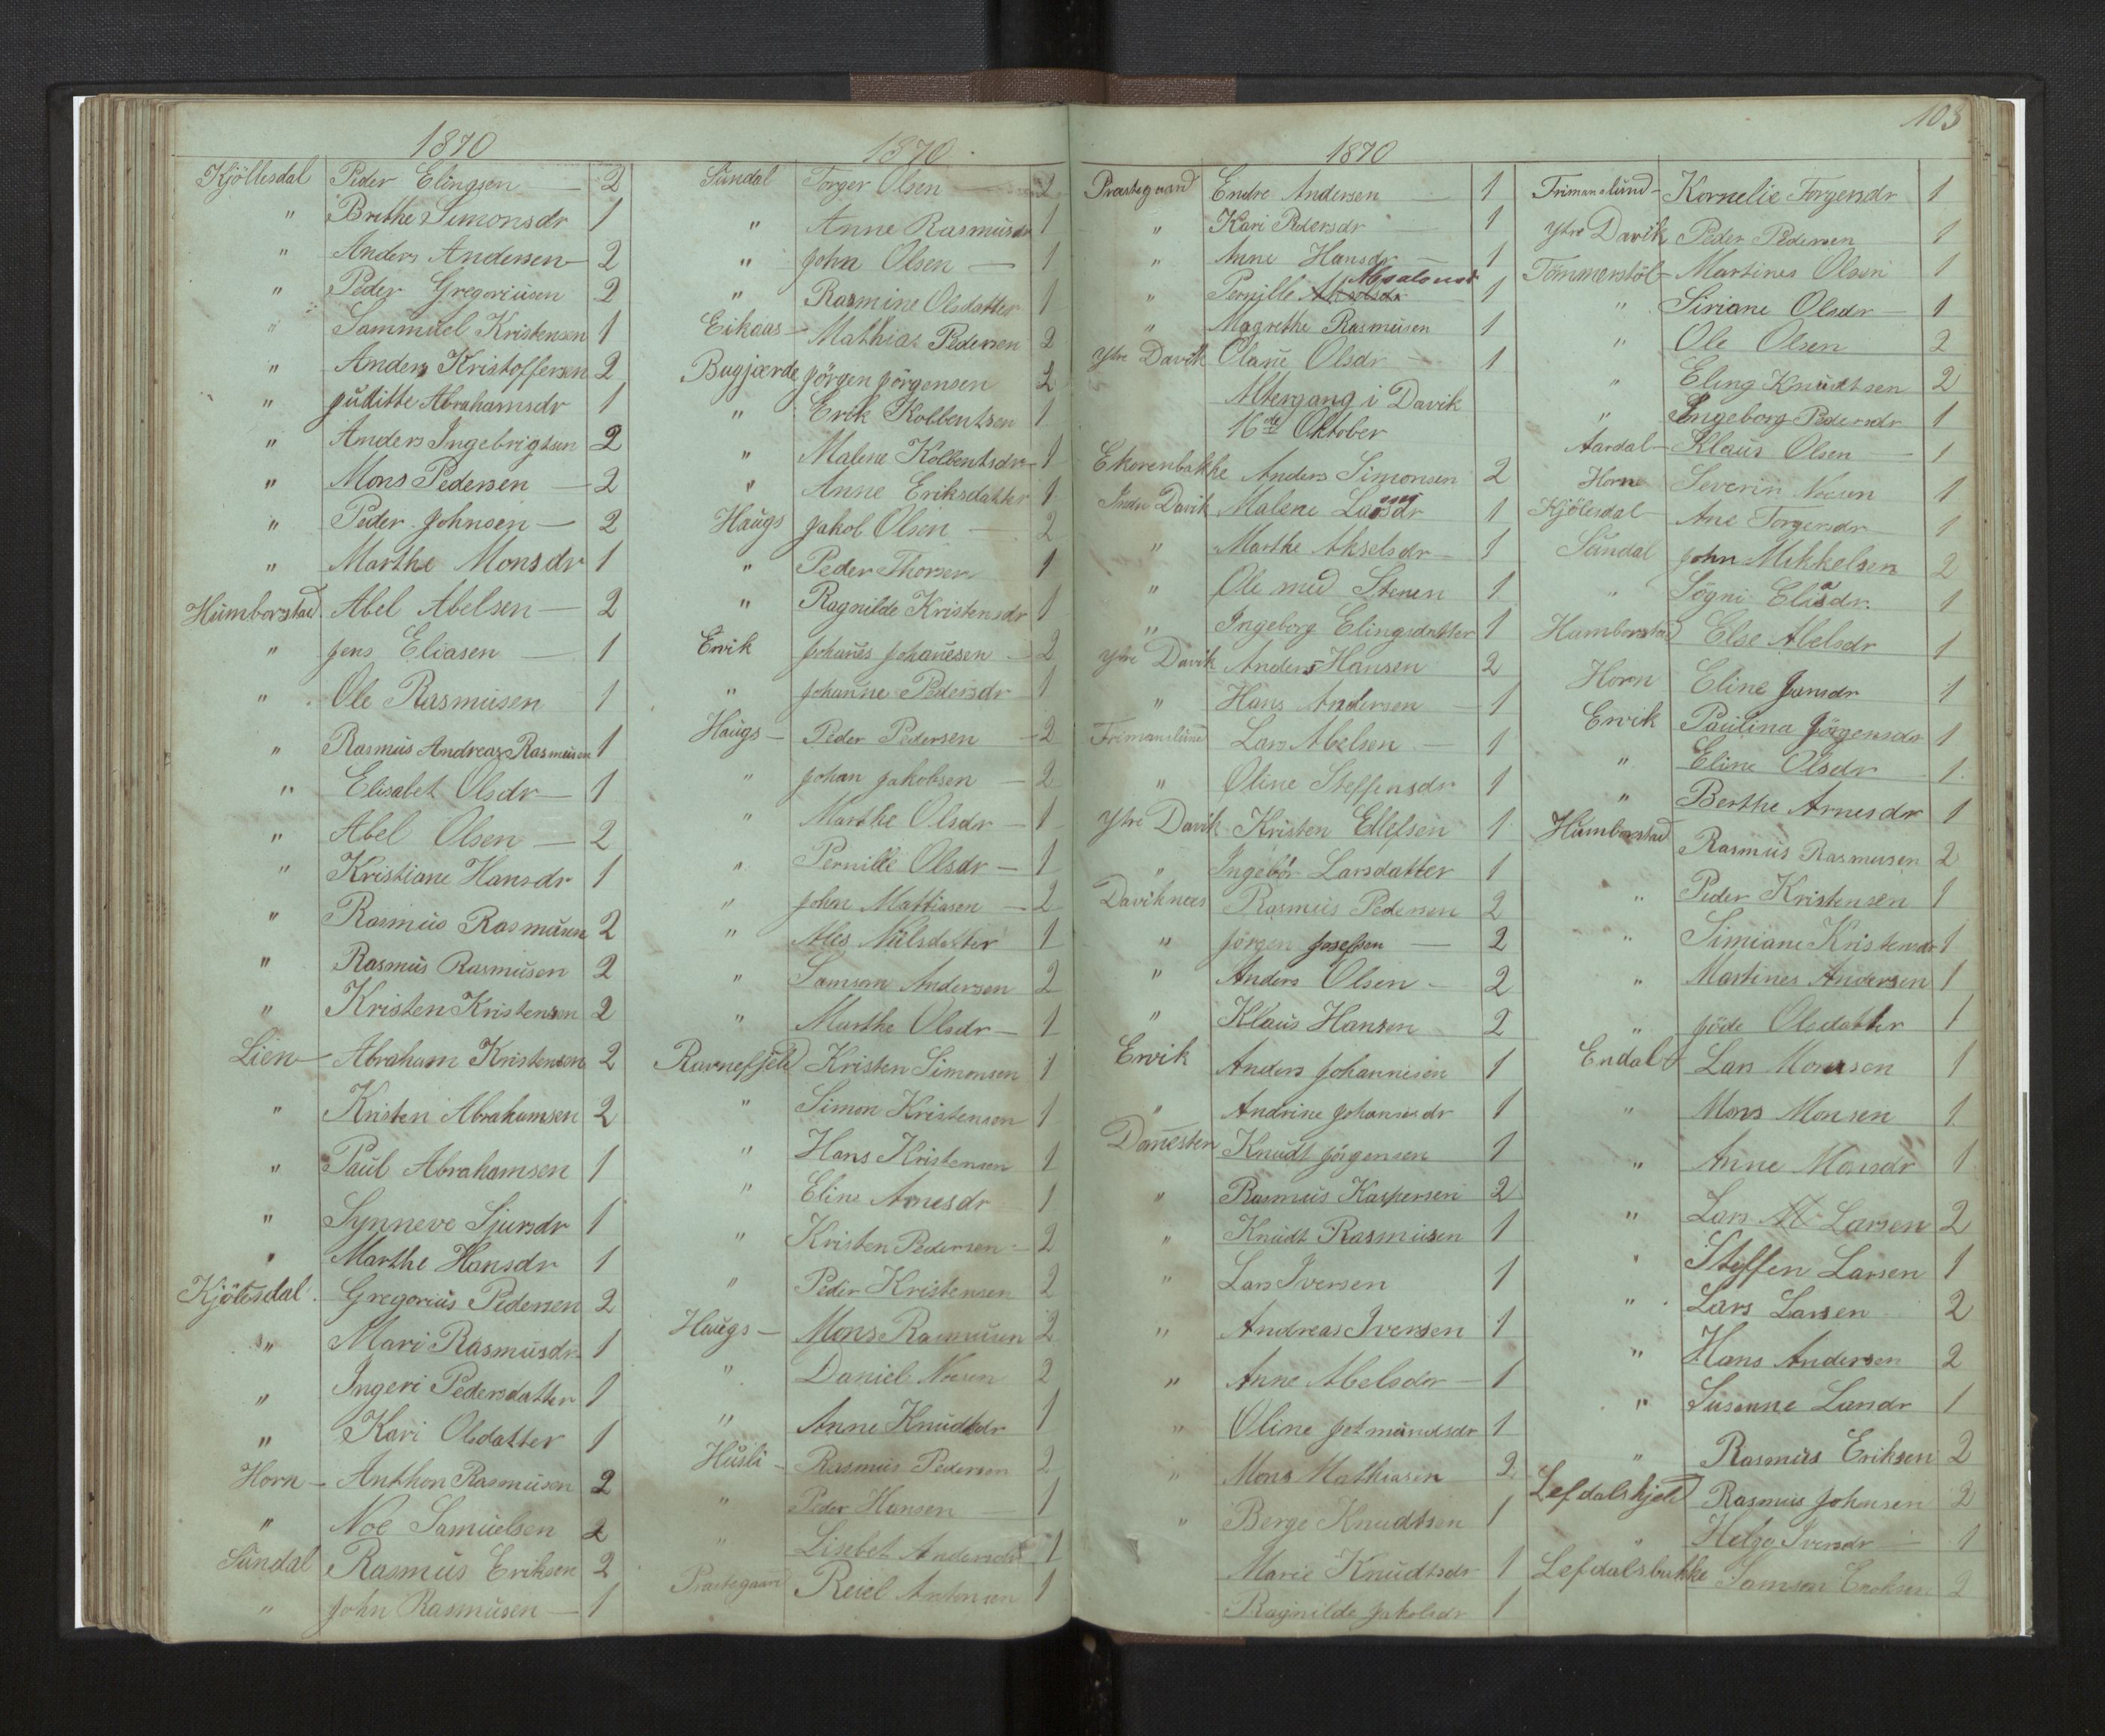 1870
Kjöllesdal Peder Elingsen — 2
" Brethe Simonsdr 1
" Anders Andersen — 2
" Peder Gregoriusen 2
" Sammuel Kristensen 1
" Anders Kristoffersen 2
" Juditte Abrahamsdr 1
" Anders Ingebrigtsen 2
" Mons Pedersen — 2
" Peder Johnsen — 2
" Marthe Monsdr 1
Humborstad Abel Abelsen — 2
" Jens Eliasen — 1
" Ole Rasmusen 1
" Rasmus Andreas Rasmusen 1
" Elisabet Olsdr — 1
" Abel Olsen — 2
" Kristiane Hansdr 1
" Rasmus Rasmusen 2
" Rasmus Rasmusen 2
" Kristen Kristensen 2
Lien — Abraham Kristensen 2
" Kristen Abrahamsen 2
" Paul Abrahamsen 1
" Synneve Sjursdr 1
" Marthe Hansdr 1
Kjölesdal Gregorius Pedersen 2
" Mari Rasmusdr 1
" Ingeri Pedersdatter 1
" Kari Olsdatter 1
Horn — Anthon Rasmusen 2
" Noe Samuelsen 2
Sundal Rasmus Eriksen 2
" John Rasmusen — 1
1870
Sundal Torger Olsen — 2
" Anne Rasmusdr 1
" John Olsen — 1
" Rasmine Olsdatter 1
Eikaas — Mathias Pedersen 2
Bugjærde Jörgen Jörgensen 2
" Erik Kolbentsen 1
" Malene Kolbentsdr — 1
" Anne Eriksdatter 1
Haugs Jakob Olsen — 2
" Peder Thorsen 1
" Ragnilde Kristensdr 1
Ervik Johanes Johanesen — 2
" Johanne Pedersdr — 1
Haugs — Peder Pedersen — 2
" Johan Jakobsen — 2
" Marthe Olsdr — 1
" Pernille Olsdr — 1
" Johan Mattiasen — 2
" Ales Nilsdatter 1
" Samson Andersen 2
" Marthe Olsdr — 1
Ravnefjeld Kristen Simonsen 1
" Simon Kristensen 1
" Hans Kristensen 1
" Eline Arnesdr 1
" Kristen Pedersen — 2
" Peder Kristensen 2
Haugs — Mons Rasmusen 2
" Daniel Noesen 2
" Anne Knudtsdr 1
Husli — Rasmus Pedersen 2
" Peder Hansen — 1
" Lisebet Andersdr 1
Prastegaard Reiel Antonsen 1
1870
Prastegaard Endre Andersen — 1
" Kari Pedersdr — 1
" Anne Hansdr — 1
" Pernille Absalonsdr 1
" Magrethe Rasmusen 1
Ytre Davik Olane Olsdr — 1
Altergang i Davik
16de Oktober
Ekorenbakke Anders Simonsen 2
Indre Davik Malene Larsdr 1
" Marthe Akselsdr — 1
" Ole med Stenen 1
" Ingeborg Elingsdatter 1
Ytre Davik Anders Hansen 2
" Hans Andersen — 1
Frimanslund Lars Abelsen — 1
" Oline Steffensdr 1
Ytre Davik Kristen Ellefsen 1
" Ingebor Larsdatter 1
Daviknees Rasmus Pedersen 2
" Jörgen Josefsen — 2
" Anders Olsen — 2
" Klaus Hansen 2
Ervik Anders Johannesen 1
" Andrine Johanesdr 1
Domesten Knudt Jörgensen 1
" Rasmus Kaspersen 2
" Knudt Rasmusen 1
" Lars Iversen 1
" Andreas Iversen 1
" Anne Abelsdr — 1
" Oline Jetmundsdr 1
" Mons Mathiasen 2
" Berge Knudtsen 1
Marie Knudtsdr 1
Ragnilde Jakobsdr 1
103
Frimanslund — Kornelie Torgersdr 1
Ytre Davik Peder Pedersen 1
Tömmerstöl — Martines Olsen 1
" Siriane Olsdr — 1
" Ole Olsen 2
" Eling Knudtsen 2
" Ingeborg Pedersdr 1
Aardal — Klaus Olsen — 1
Horn Severin Noesen 1
Kjölesdal — Ane Torgersdr 1
Sundal John Mikkelsen 2
" Sögni Eliasdr. 1
Humborstad Else Abelsdr 1
Horn Eline Jensdr 1
Ervik Paulina Jörgensdr 1
" Eline Olsdr 1
" Berthe Arnesdr 1
Humborstad Rasmus Rasmusen 2
" Peder Kristensen 1
" Simiane Kristensdr 1
" Martines Andersen 1
" Jöde Olsdatter 1
Endal Lars Monsen 1
" Mons Monsen 1
" Anne Monsdr 1
" Lars Larsen 2
" Steffen Larsen 1
" Lars Larsen 2
" Hans Andersen 2
" Susanne Larsdr 1
" Rasmus Eriksen 2
Lefdalshjeld Rasmus Johnsen 2
" Helge Iversdr — 1
Lefdalsbakke Samson Enoksen 2